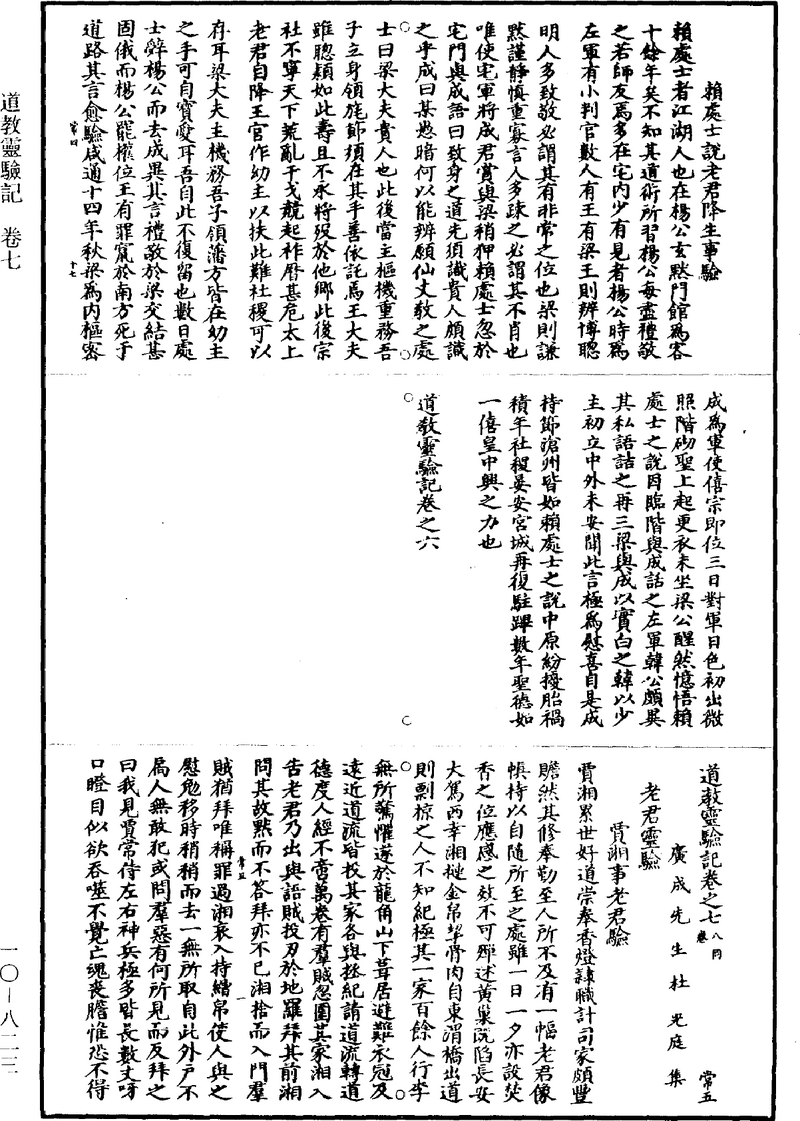 賴處士說老君降生事驗
賴處士者江湖人也在楊公玄黙門館為客
十餘年莫不知其道術所習楊公每盡禮敬
之若師友焉多在宅內少有見者楊公時為
左軍有小判官數人有王有梁王則辨博聰
明人多致敬必謂其有非常之位也梁則謙
黙謹靜慎重寡言人多疎之必謂其不肖也
唯使宅軍將成君賞與梁稍狎賴處士忽於
宅門與成語曰致身之道先須識貴人頗識
之乎成曰某愚暗何以能辨願仙丈教之處
士曰梁大夫貴人也此後當主樞機重務吾
子立身領旄節須在其手善依託焉王大夫
雖聰穎如此壽且不永將歿於他鄉此後宗
社不寧天下荒亂干戈競起祚曆甚危太上
老君自降王宮作幼主以扶此難社稷可以
存耳梁大夫主機務吾子領藩方皆在幼主
之手可自寶愛耳吾自此不復留也數日處
士辭楊公而去成異其言禮敬於梁交結甚
固俄而楊公罷權位王有罪竄於南方死于
道路其言愈驗咸通十四年秋梁為內樞密
成為軍使僖宗即位三日對軍日色初出微
照階砌聖上起更衣未坐梁公醒然憶悟賴
處士之說因臨階與成話之左軍韓公頗異
其私語詰之再三梁與成以實白之韓以少
主初立中外未安聞此言極為慰喜自是成
持節滄州皆如賴處士之說中原紛擾胎禍
積年社稷晏安宮城再復駐蹕數年聖德如
一僖皇中興之力也
道教靈驗記卷之六
道教靈驗記卷之七 八同卷 常五
廣成先生杜光庭集
老君靈驗
賈湘事老君驗
賈湘累世好道崇奉香燈隸職計司家頗豐
贍然其修奉勤至人所不及有一幅老君像
幀持以自隨所至之處雖一日一夕亦設焚
香之位應感之效不可殫述黃巢既陷長安
大駕西幸湘挈金帛挈骨肉自東渭橋出道
則剽掠之人不知紀極其一家百餘人行李
無所驚懼遂於龍角山下葺居避難衣冠及
遠近道流皆投其家各與拯紀請道流轉道
德度人經不啻萬卷有羣賊忽圍其家湘入
告老君乃出與語賊投刃於地羅拜其前湘
問其故黙而不答拜亦不已湘捨而入門羣
賊猶拜唯稱罪過湘哀入持繒帛使人與之
慰勉移時稍稍而去一無所取自此外戶不
扃人無敢犯或問羣惡有何所見而反拜之
曰我見賈常侍左右神兵極多皆長數丈呀
口瞪目似欲吞噬不覺亡魂喪膽惟恐不得
道教靈驗記 卷七
一〇—八二三